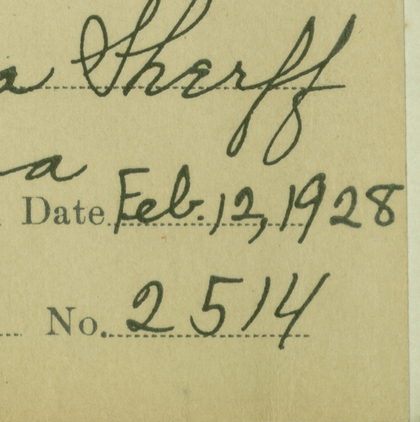 a Sherff
a
Date Feb. 12, 1928
No. 2514